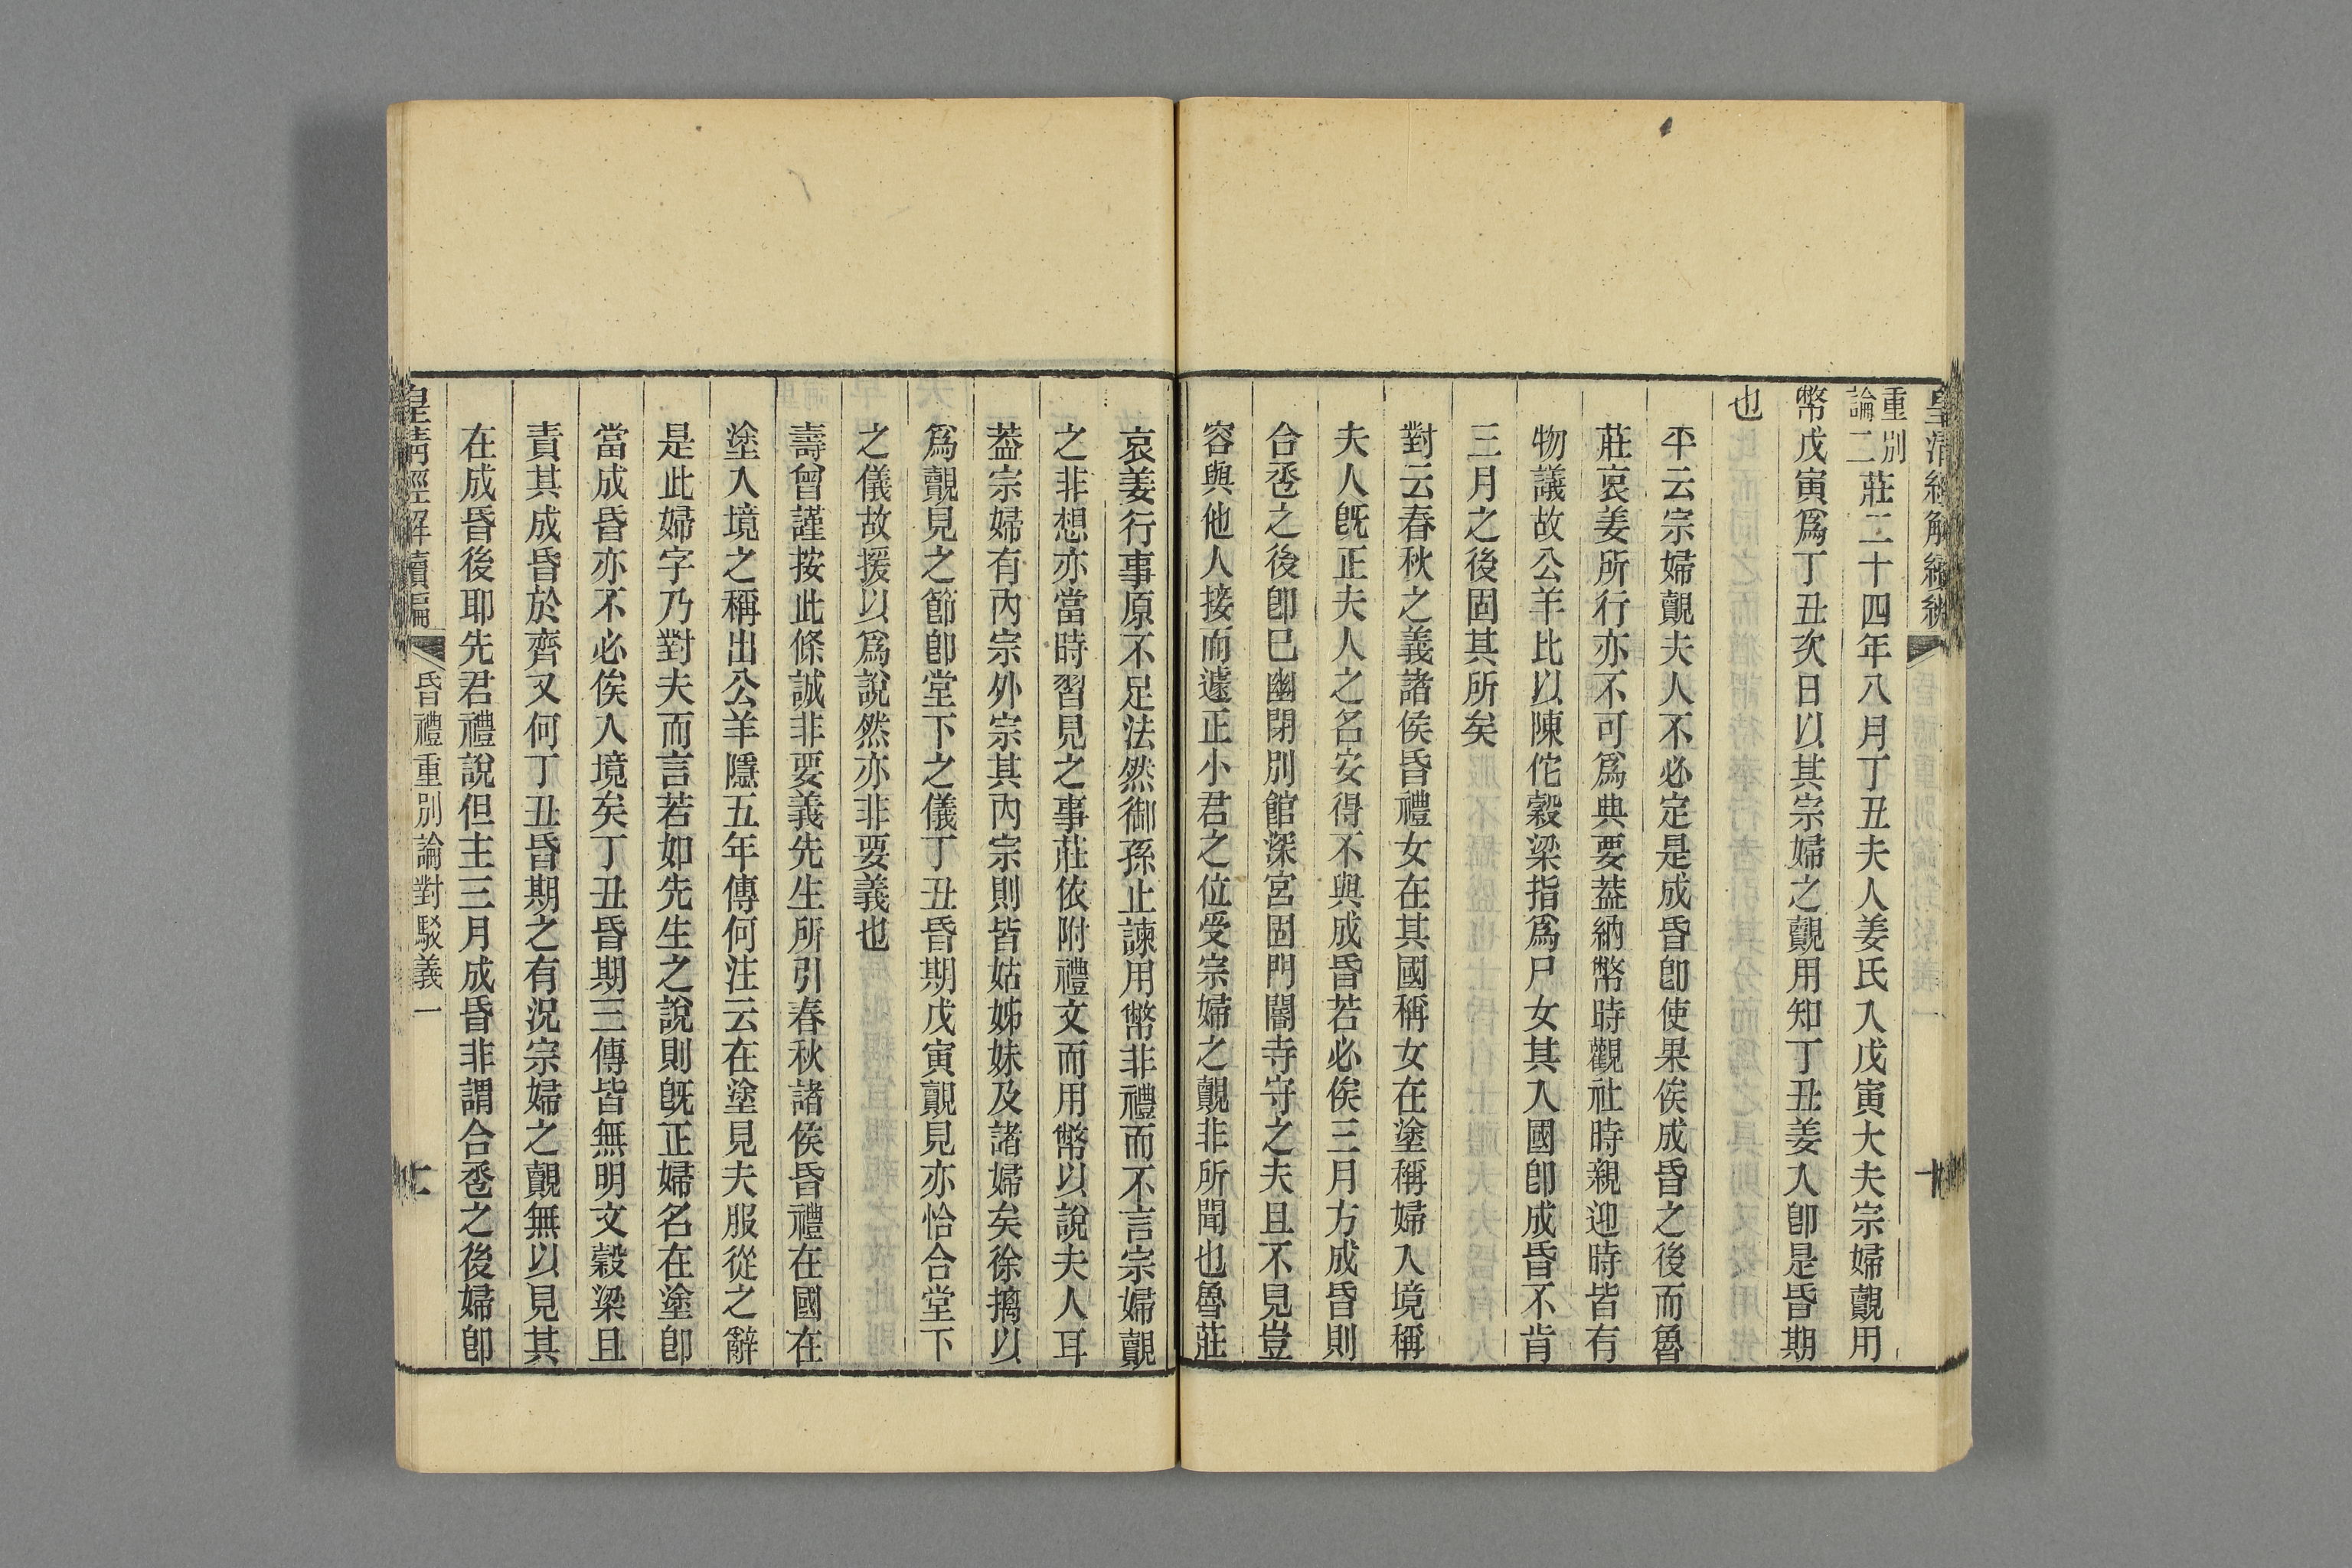 皇清經解續編
十
重別論二莊二十四年八月丁丑夫人姜氏入戊寅大夫宗婦覿用
幣戊寅爲丁丑次日以其宗婦之覿用知丁丑姜入卽是昏期
也
平云宗婦覿夫人不必定是成昏卽使果俟成昏之後而魯
莊哀姜所行亦不可爲典要葢納幣時觀社時親迎時皆有
物議故公羊比以陳佗穀梁指爲尸女其入國卽成昏不肯
三月之後固其所矣
對云春秋之義諸侯昏禮女在其國稱女在塗稱婦入境稱
夫人旣正夫人之名安得不與成昏若必俟三月方成昏則
合卺之後卽已幽閉別館深宮固門閽寺守之夫且不見豈
容與他人接而遽正小君之位受宗婦之覿非所聞也魯莊
哀姜行事原不足法然御孫止諫用幣非禮而不言宗婦覿
之非想亦當時習見之事莊依附禮文而用幣以說夫人耳
葢宗婦有內宗外宗其內宗則皆姑姊妹及諸婦矣徐摛以
爲覿見之節卽堂下之儀丁丑昏期戊寅覿見亦恰合堂下
之儀故援以爲說然亦非要義也
壽曾謹按此條誠非要義先生所引春秋諸侯昏禮在國在
塗入境之稱出公羊隱五年傳何注云在塗見夫服從之辭
是此婦字乃對夫而言若如先生之說則旣正婦名在塗卽
當成昏亦不必俟入境矣丁丑昏期三傳皆無明文穀梁且
責其成昏於齊又何丁丑昏期之有況宗婦之覿無以見其
在成昏後耶先君禮說但主三月成昏非謂合卺之後婦卽
皇清經解續編
昏禮重別論對駁義一